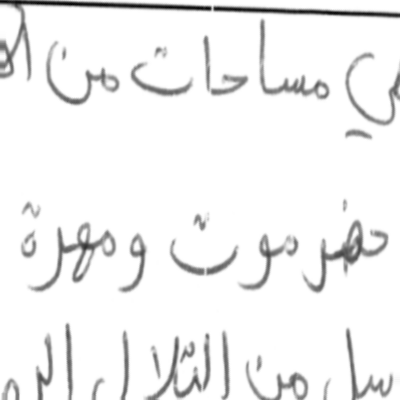 في مساحات من
حضرموت ومهرة
من التلال